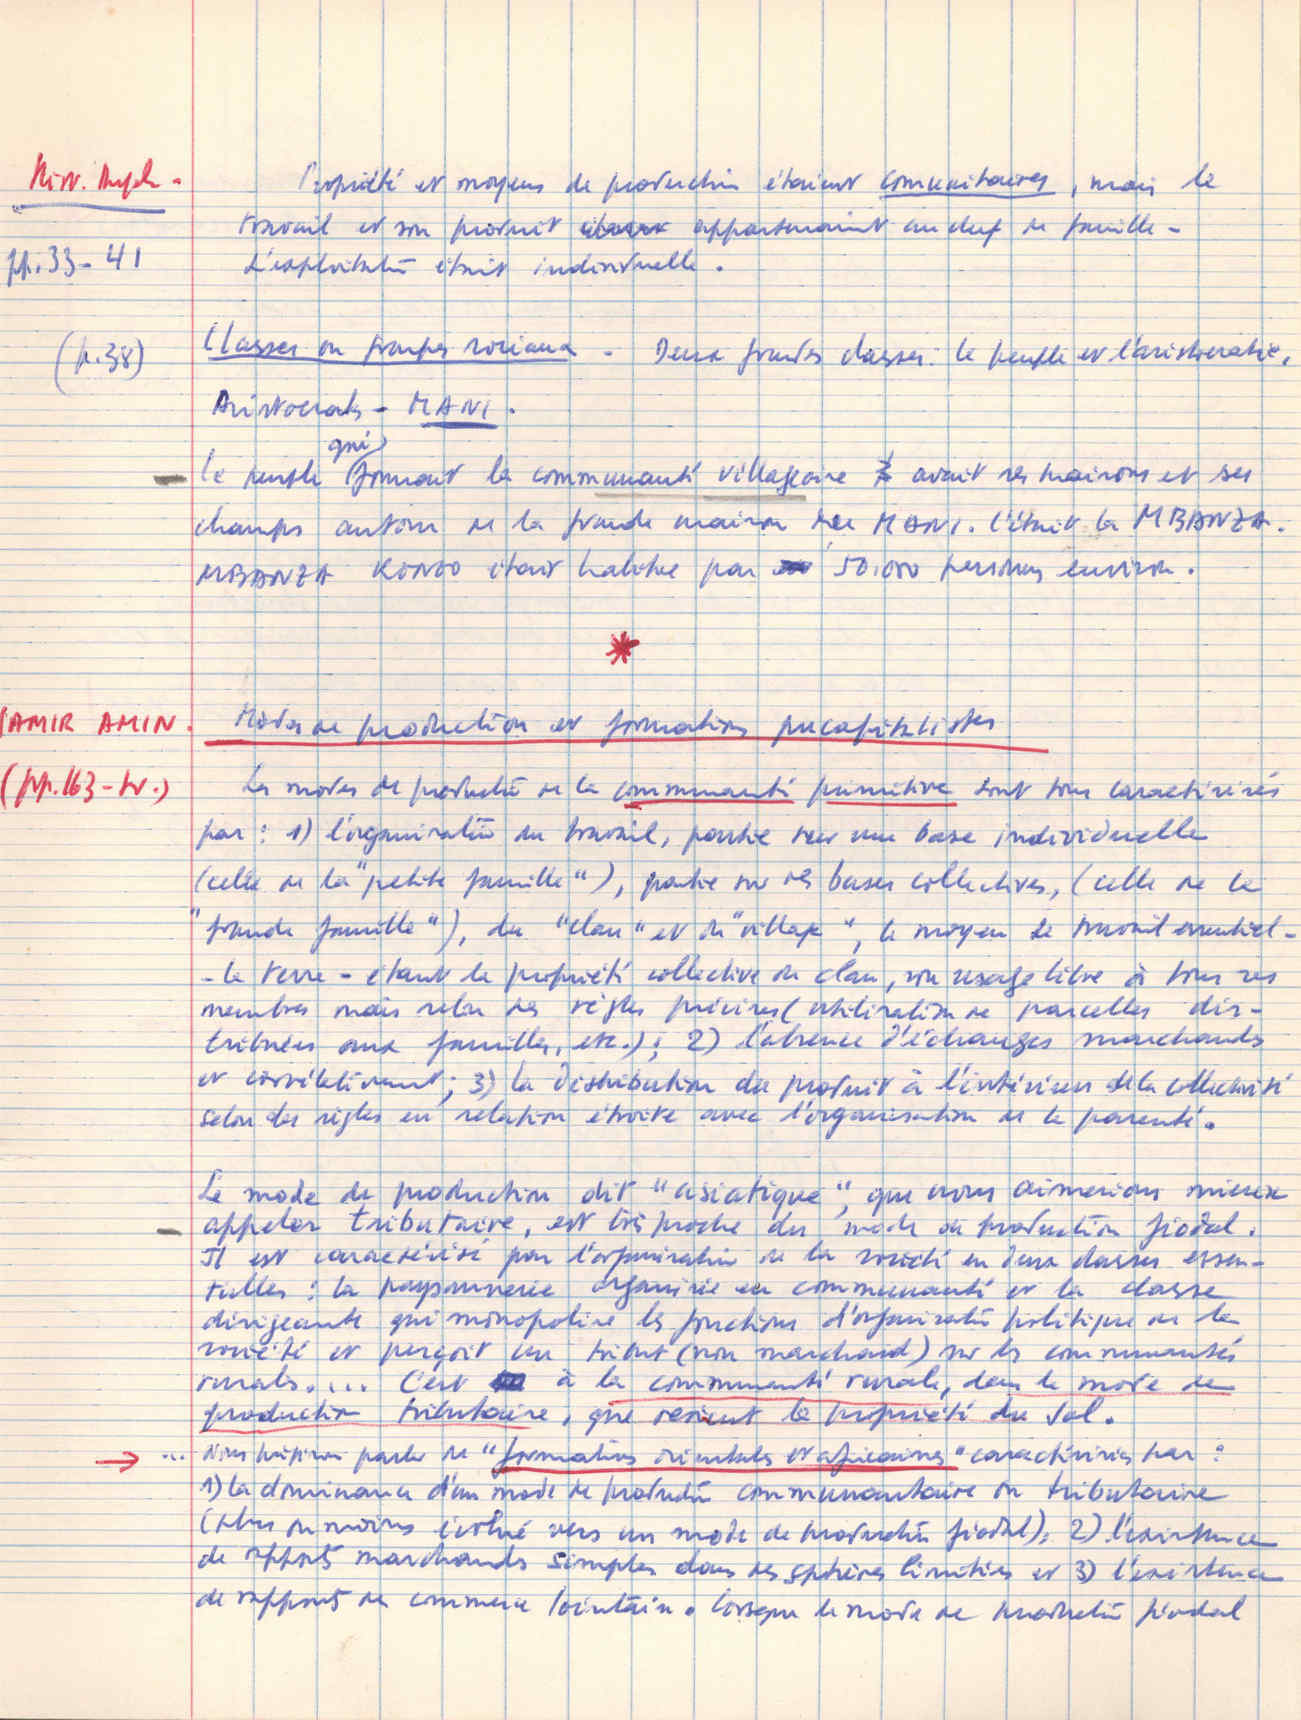 Hist. Angola -
Propriété et moyens de production étaient communitaires, mais le
travail et son produit appartenaient au chef de famille -
pp. 33 - 41
L'exploitation était individuelle.
(p. 38)
Classes ou groupes sociaux - Deux grandes classes : le peuple et l'aristocratie.
Aristocrats - MANI.
qui
le peuple formant la communauté villageoise avait ses maisons et ses
champs autour de la grande maison du MANI. C'était la MBANZA.
MBANZA KONGO étant habitée par 50.000 personnes environ.
SAMIR AMIN.
Modes de production et formations précapitalistes
(pp. 163 - tr.)
Les modes de production de la communauté primitive sont tous caractérisés
par : 1) l'organisation du travail, partie sur une base individuelle
(celle de la "petite famille"), partie sur des bases collectives, (celle de la
"grande famille"), du "clan" et du "village", le moyen de travail essentiel -
- la terre - étant la propriété collective du clan, son usage libre à tous ses
membres mais selon des règles précises (utilisation de parcelles dis-
tribuées aux familles, etc.) ; 2) l'absence d'échanges marchands
et corrélativement ; 3) la distribution du produit à l'intérieur de la collectivité
selon des règles en relation étroite avec l'organisation de la parenté.
Le mode de production dit "asiatique", que nous aimerions mieux
appeler tributaire, est très proche du mode de production féodal.
Il est caractérisé par l'organisation de la société en deux classes essen-
tielles : la paysannerie organisée en communauté et la classe
dirigeante qui monopolise les fonctions d'organisation politique de la
société et perçoit un tribut (non marchand) sur les communautés
rurales.... C'est à la communauté rurale, dans le mode de
production tributaire, que revient la propriété du sol.
→ ... Nous préférons parler de "formations orientales et africaines" caractérisées par :
1) la dominance d'un mode de production communautaire ou tributaire
(plus ou moins évolué vers un mode de production féodal) ; 2) l'existence
de rapports marchands simples dans des sphères limitées et 3) l'existence
de rapports de commerce lointain. Lorsque le mode de production féodal